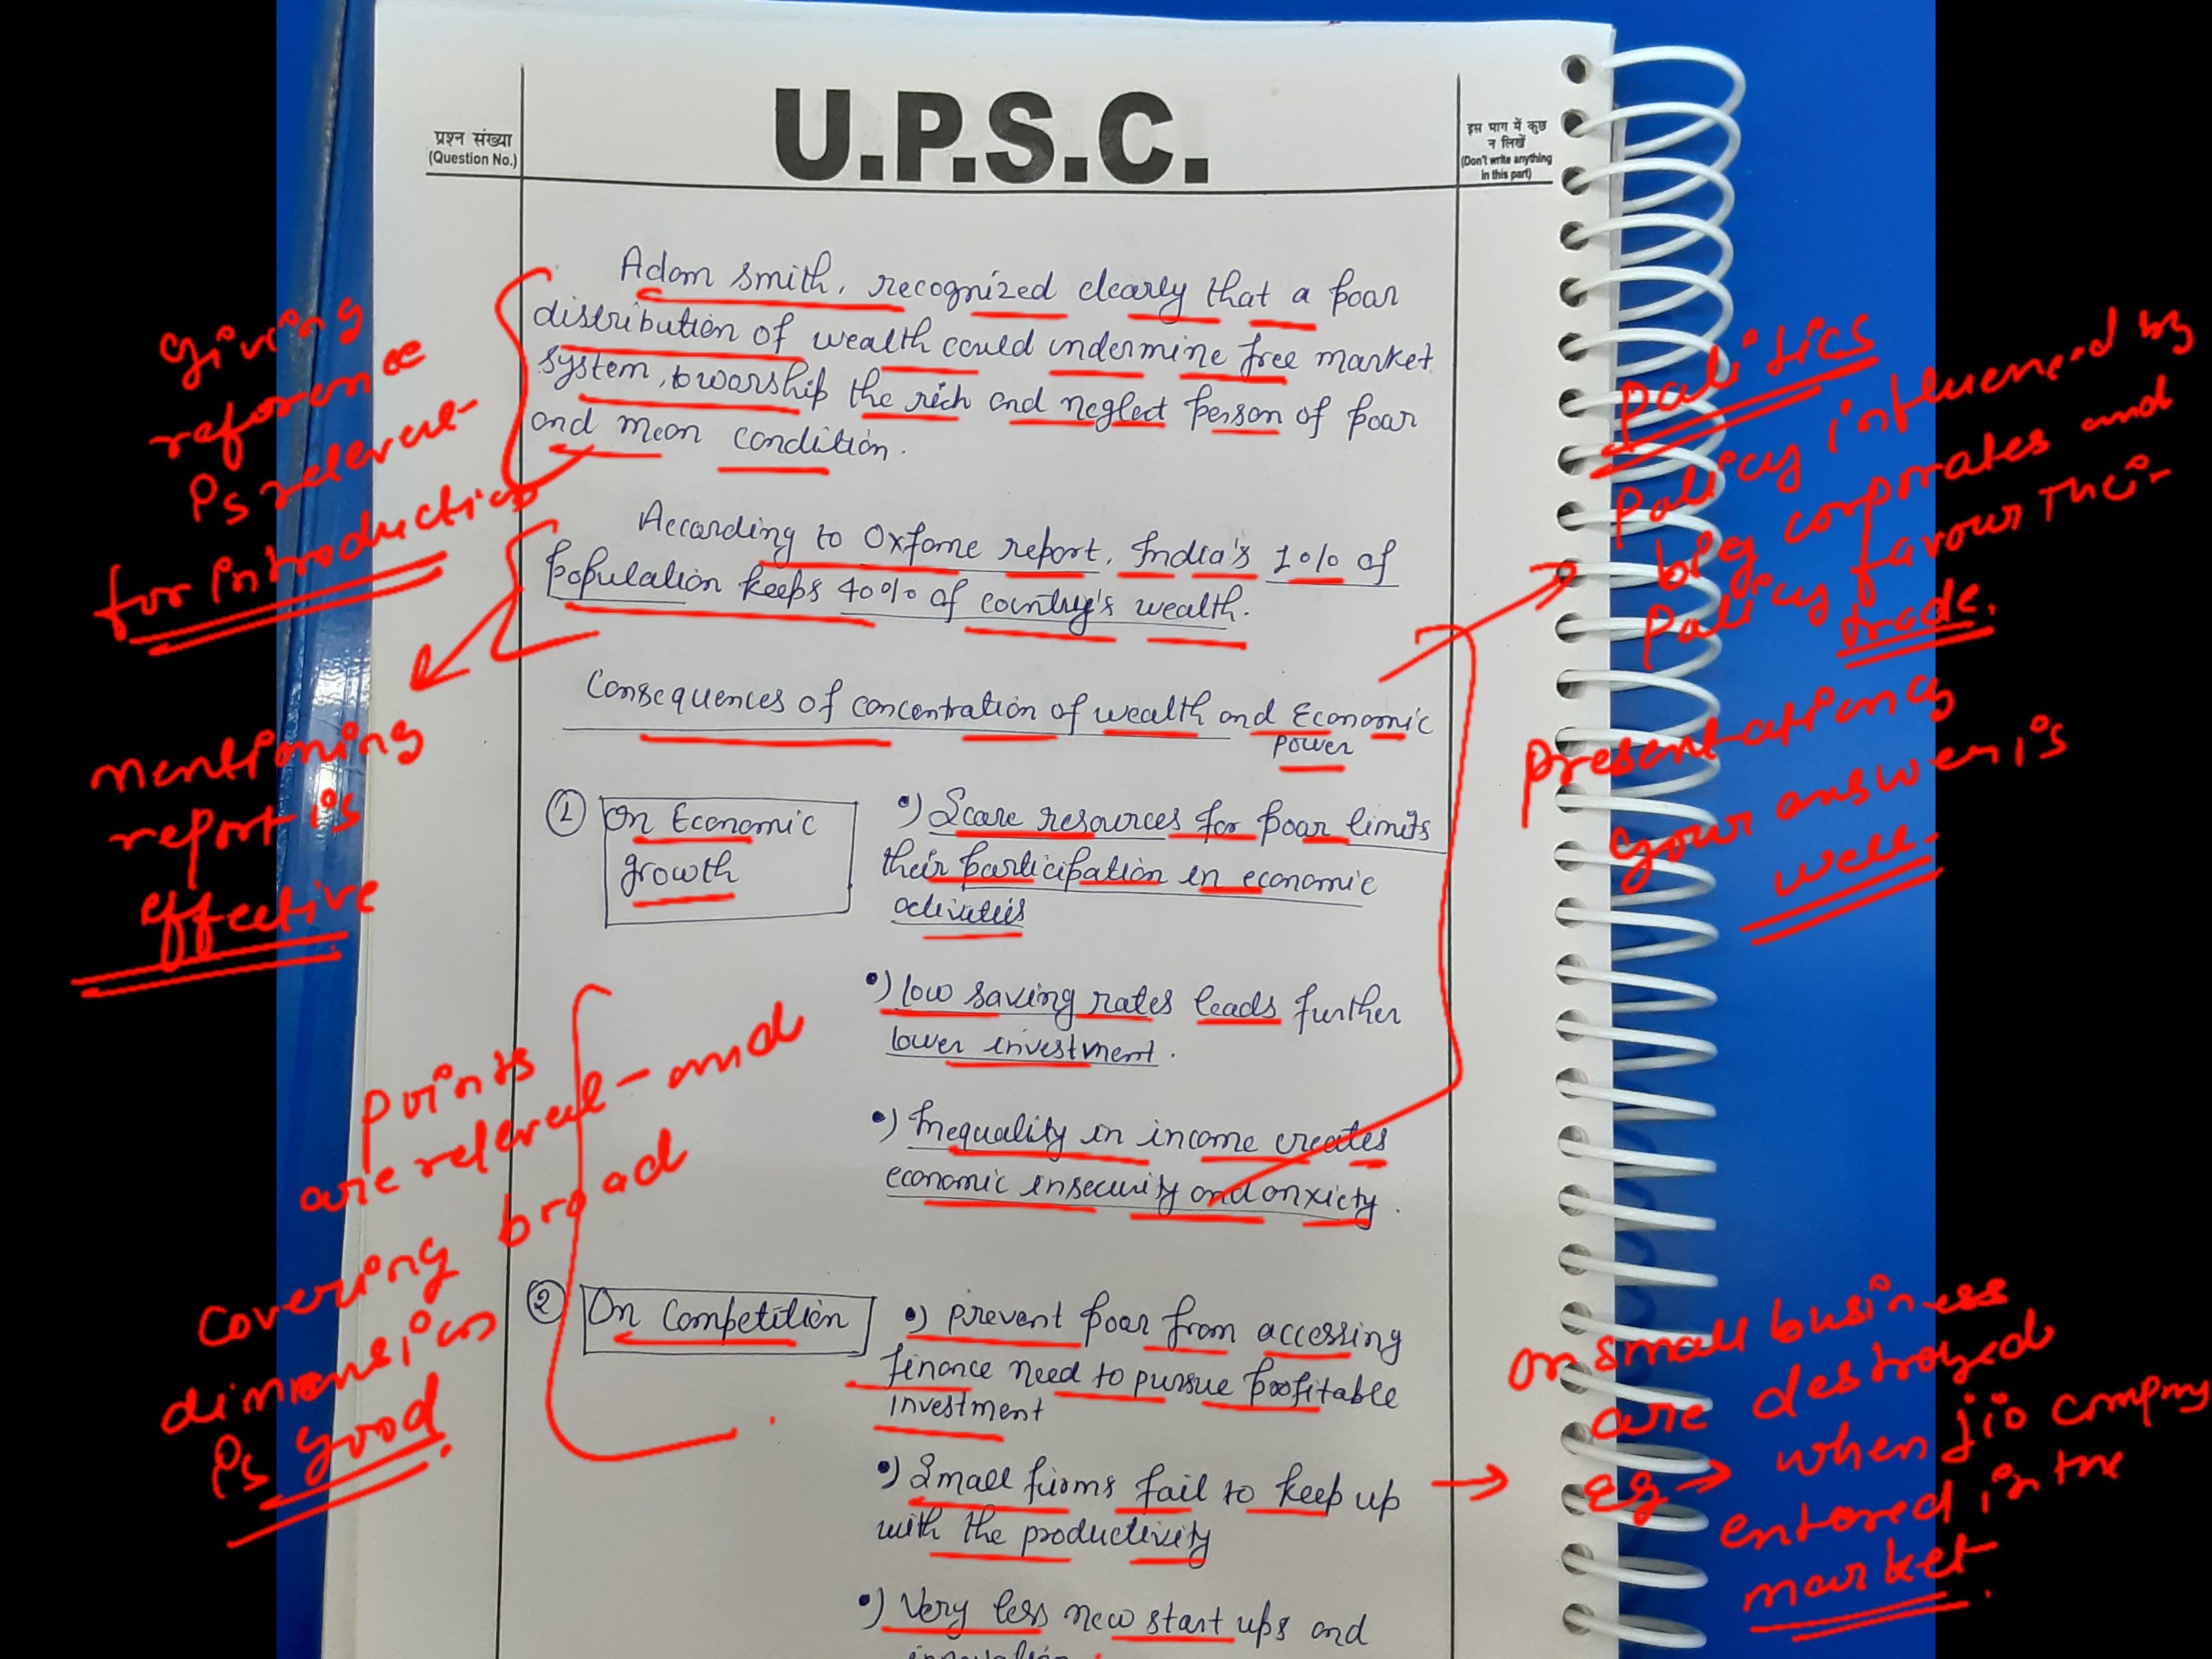 U.P.S.C.
प्रश्न संख्या
(Question No.)
इस भाग में कुछ
न लिखें
(Don't write anything
in this part)
Adam Smith, recognized clearly that a poor
distribution of wealth could undermine free market
system, to worship the rich and neglect person of poor
and mean condition.
According to Oxfame report, India's 1% of
population keeps 40% of country's wealth.
Consequences of concentration of wealth and Economic
power
① On Economic
growth
•) Scare resources for poor limits
their participation in economic
activities
•) low saving rates leads further
lower investment.
•) Inequality in income creates
economic insecurity and anxiety.
② On Competition
•) prevent poor from accessing
finance need to pursue profitable
investment
•) Small firms fail to keep up
with the productivity
•) Very less new start ups and
innovation
giving
reference
is relevant
for introduction
mentioning
report is
effective
points
are relevant and
covering broad
dimension
is good.
Politics
Policy influenced by
big corporates and
Policy favour their
trade.
presentation
your answer is
well.
on small business
are destroyed
eg → when jio company
entered in the
market.